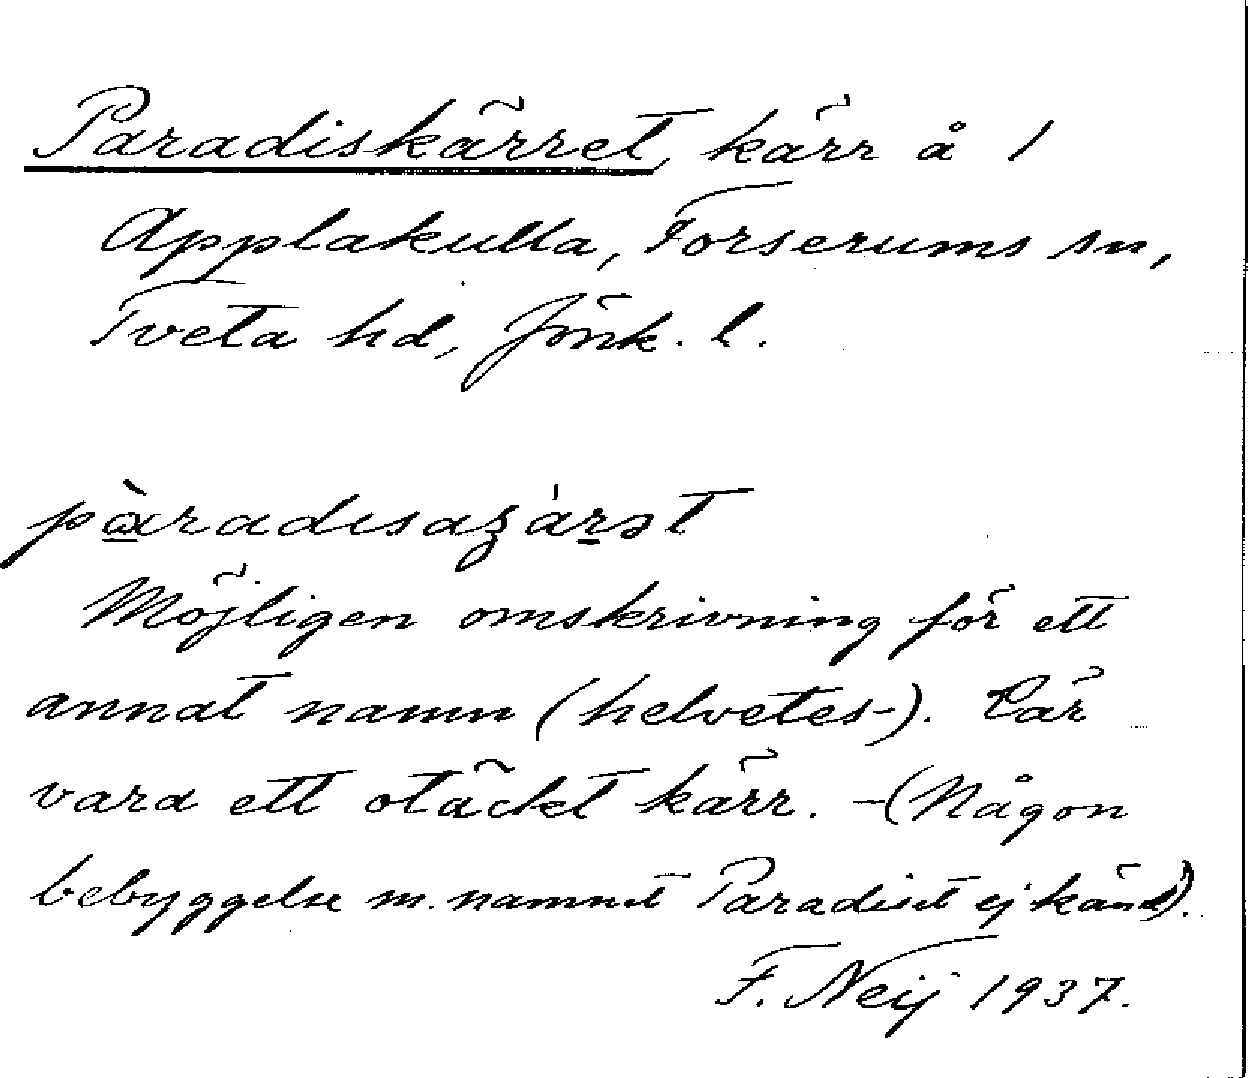 Paradiskärret, kärr å 1
Applakulla, Forserums sn,
Tveta hd, Jönk. l.
Möjligen omskrivning för ett
annat namn (helvetes-). Lär
vara ett otäckt kärr. -(Någon
bebyggelse m. namnet Paradiset ej känd).
F. Neij 1937.